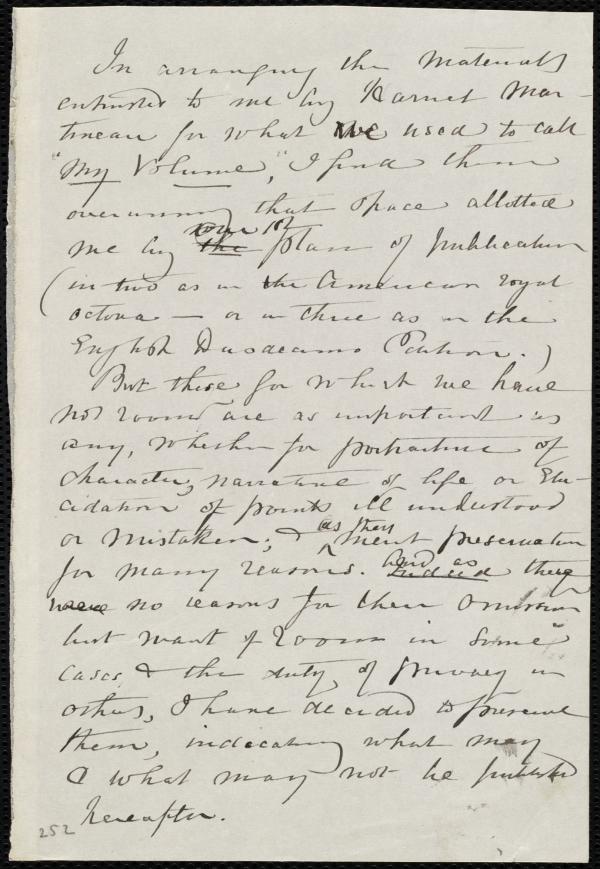 In arranging the materials
entrusted to me by Harriet Mar-
tineau for what we used to call
"My Volume," I find them
overrunning that space allotted
me by our 1st
the plan of publication
(in two as in the American royal
octavo — or in three as in the
English Duodecimo Edition.)
But these for which we have
not room are as important as
any, whether for portraiture of
character, narrative of life or Elu-
cidation of points ill understood
or mistaken; & as they merit preservation
for many reasons. And as Indeed there
were no reasons for their omission
but want of room in some
cases, & the duty of privacy in
others, I have decided to preserve
them, indicating what may
& what may not be published
hereafter.
252